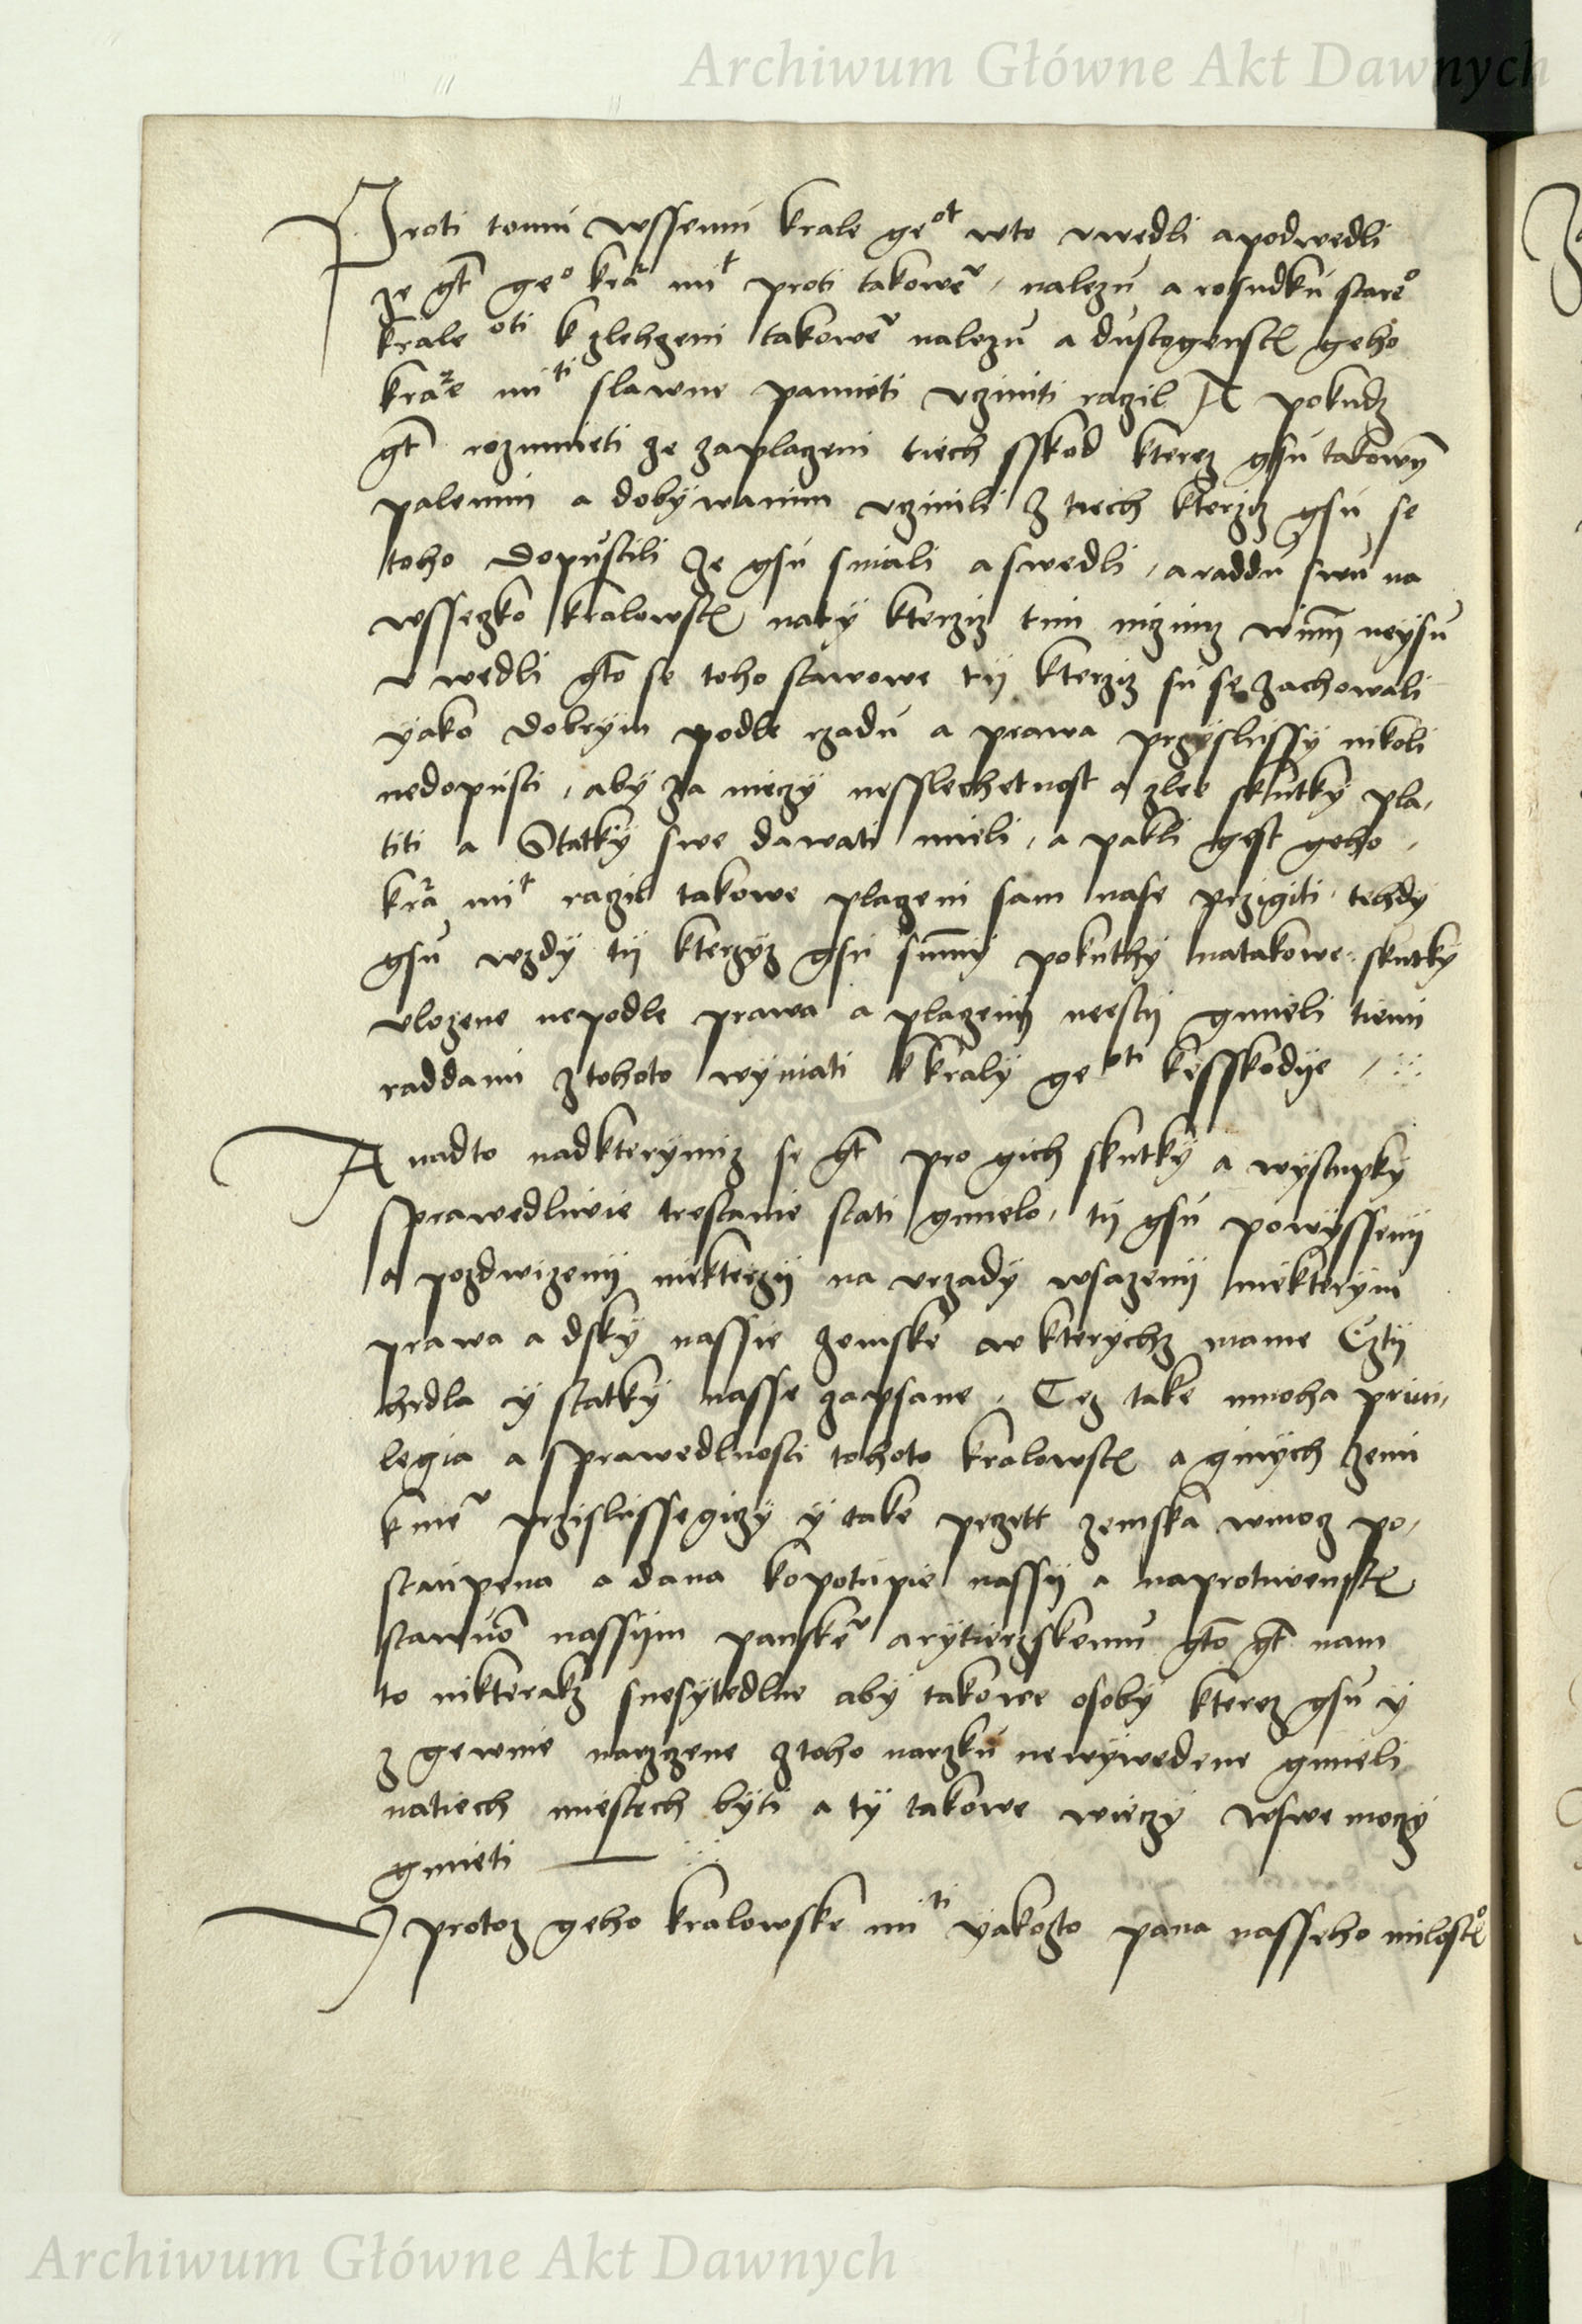 Archiwum Główne Akt Dawnych
Proti tomu wssemu krale geᵒᵗ wto vwedli apodwedli
ze gt̄ geᵒ kra miᵗ proti takoweᵛ, nalezu a rosudku stareᵒ
krale ᵒᵗⁱ k zlehzeni takoweᵛ nalezu a dustogenst geho
kraze miᵗⁱ slawne pamieti vziniti razil A pokudz
gt̄ rozumieti ze zaplazeni tiech sskod kterez gsu takowȳ
palenim a dobywanim vzinili z tiech kterziz gsu se
toho dopustili ze gsu sniali aswedli, araddu swu na
wssezko kralowst naty kterziz tim niziniz winni neysu
vwedli gt̄o se toho stawowe tij kterziz su se zachowali
yako dobrym podle rzadu a prawa przyslussy nikoli
nedopusti, aby za nieczy nesslechetnost a zlee skutky pla,
titi a Statky swe dawati mieli, a pakli gest geho,
kra miᵗ razil takowe plazeni sam nase przigiti techdy
gsu wzdy tij kterzyz gsu summy pokuthy natakowe skutky
vlozene nepodle prawa a plazenij neestij gmieli tiemi
raddami ztohoto wyniati k kraly geᵒᵗⁱ kesskodije
A nadto nadkterymiz se gt̄ pro gich skutky a wystupky
sprawedliwie trestanie stati gmielo, tij gsu powyssenij
a pozdwizenij niekterzij na vrzady wsazenij niekterym
prawa a dsky nassie zemske w kterychz mame Cztij
hrdla y statky nasse zapsane, Tez take mnoha priui,
legia a sprawedlnosti tohoto kralowst a ginych zemi
knieᵛ przislussegiczy y take peczett zemska wmocz po,
staupena a dana kopotupie nassij a naprotiwenst
stawuo nassijm panskeᵛ arytierzskemu gt̄o gt̄ nam
to nikterakz snesytedlne aby takowe osoby kterez gsu y
z gewnie narzczene ztoho narzku newywedene gmieli
natiech miestech byti a ty takowe wieczy wswe moczy
gmieti
I protoz geho kralowske miᵗⁱ yakozto pana nasseho milostᵒ
Archiwum Główne Akt Dawnych